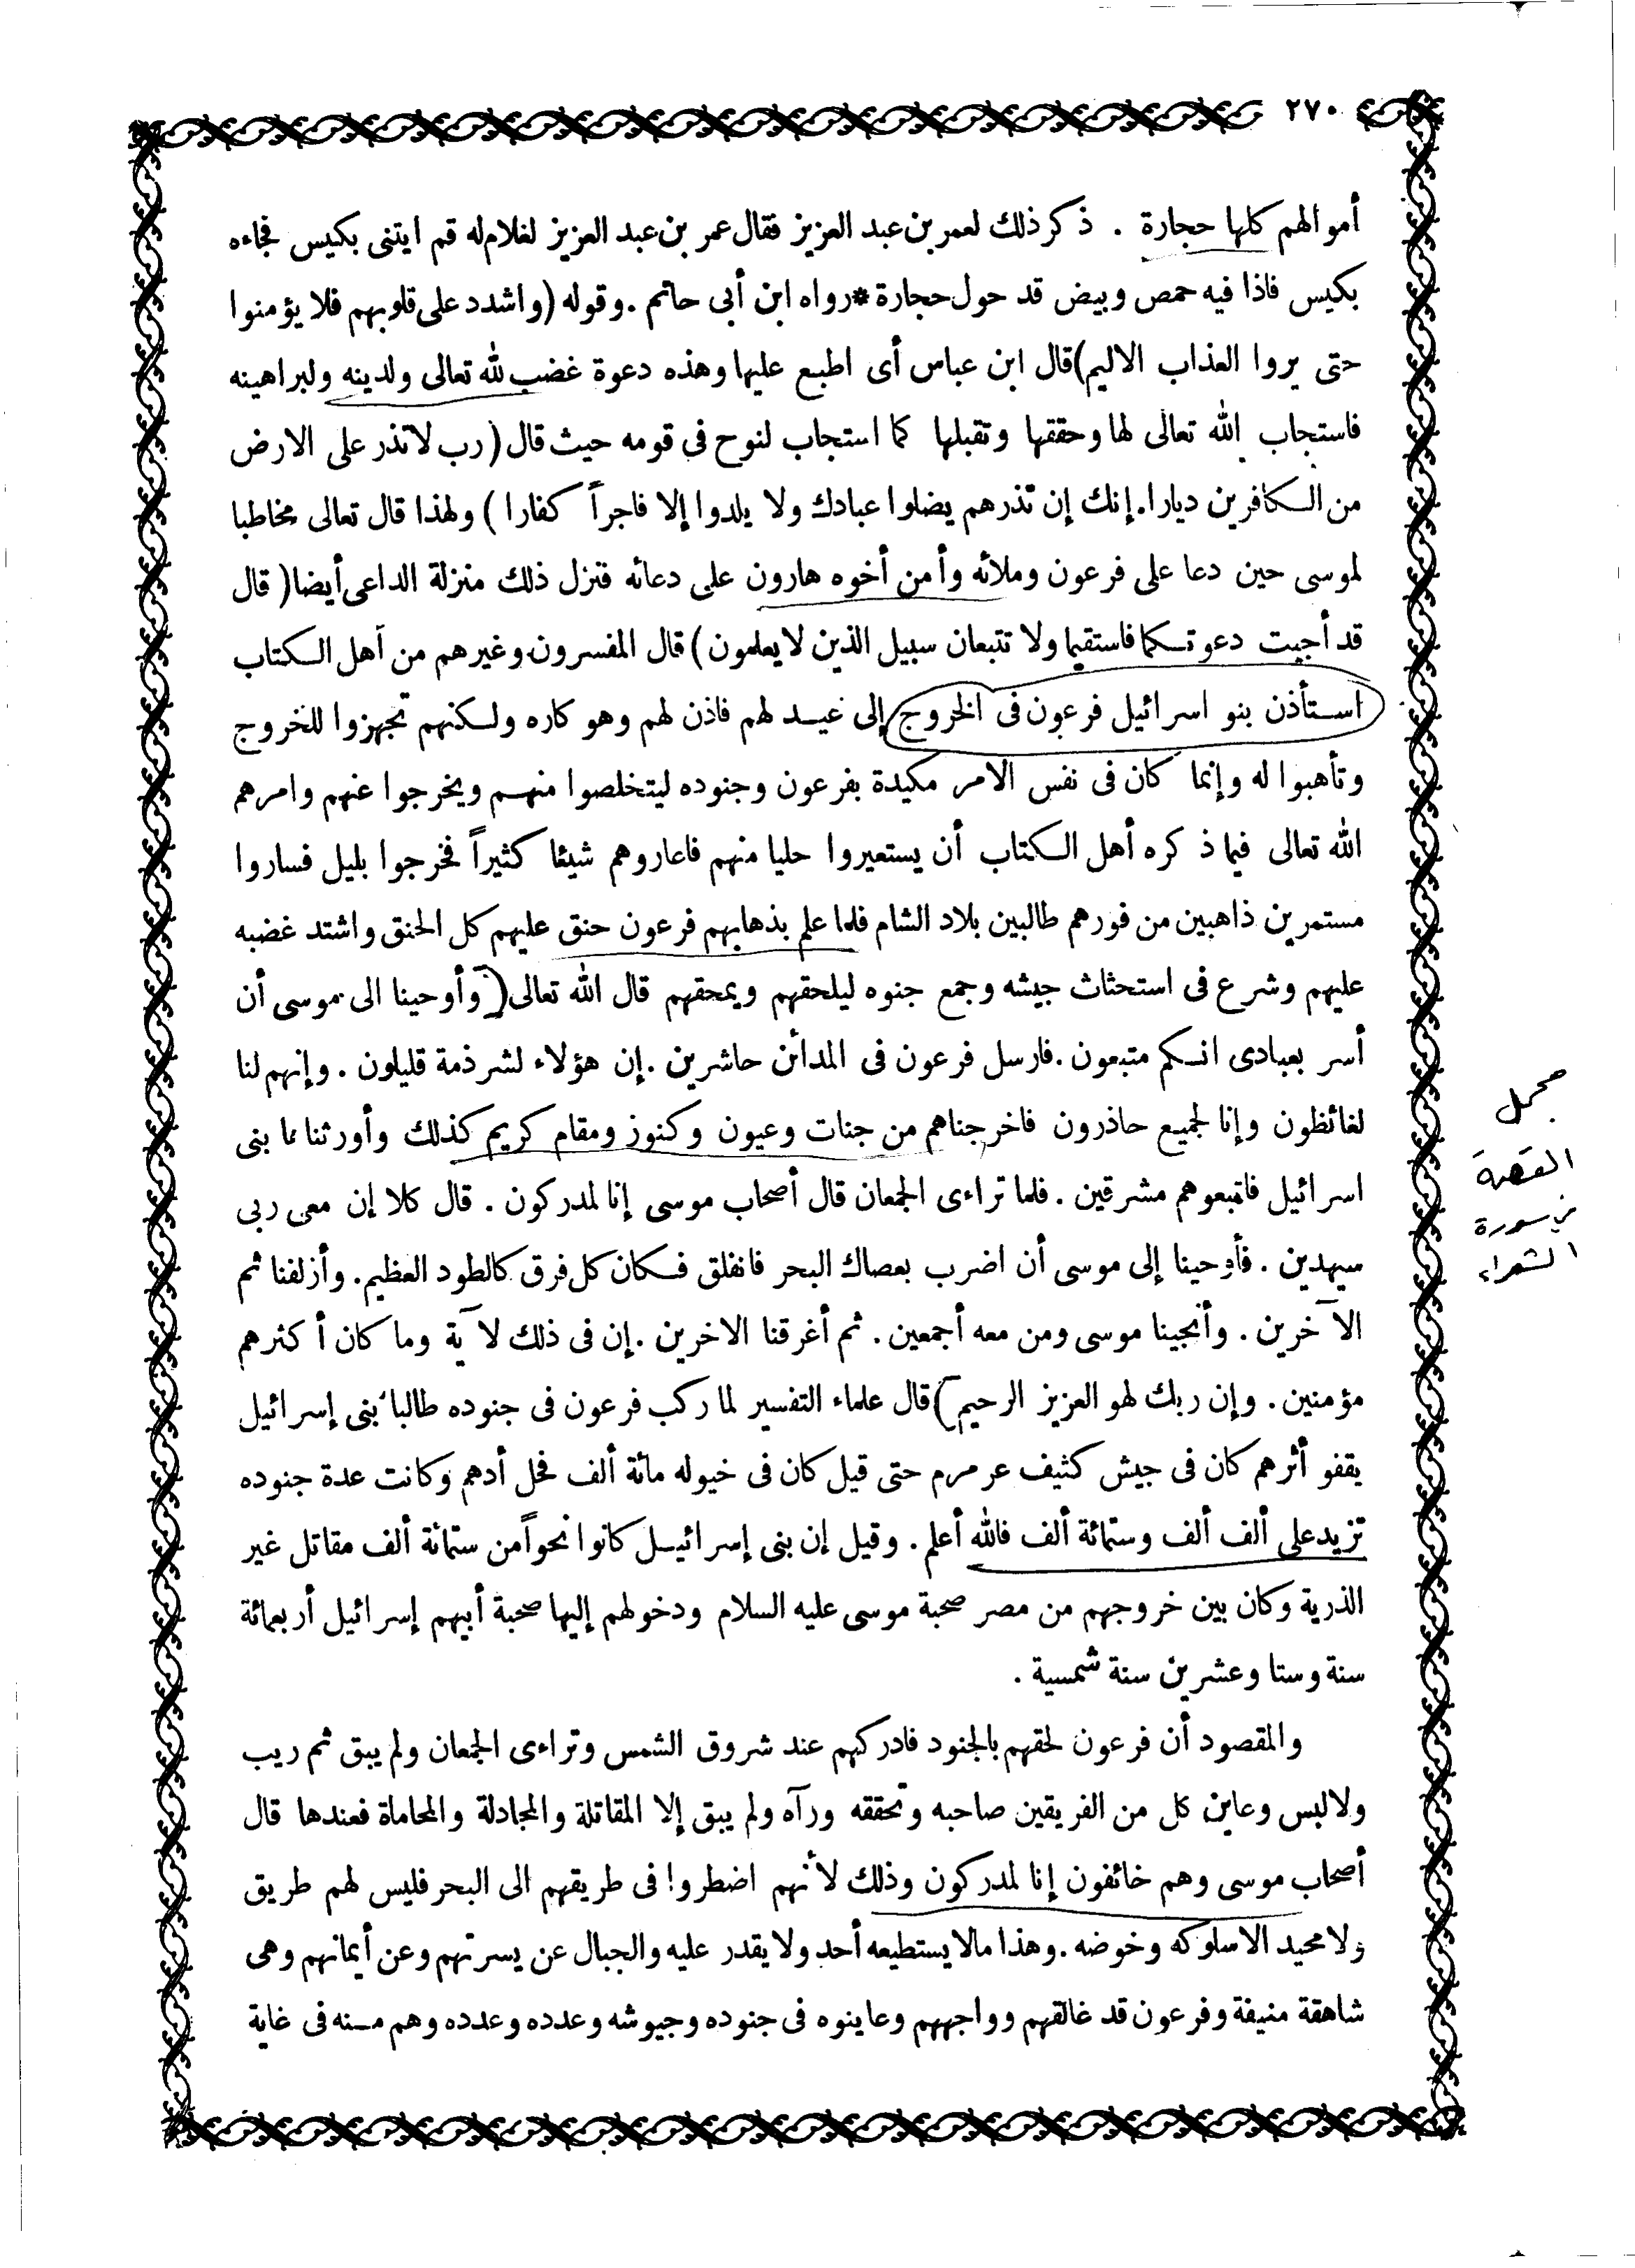 ٢٧٠
أموالهم كلها حجارة . ذكر ذلك لعمر بن عبد العزيز فقال عمر بن عبد العزيز لغلام له قم ايتنى بكيس فجاءه
بكيس فاذا فيه حمص وبيض قد حول حجارة * رواه ابن أبى حاتم . وقوله ( واشدد على قلوبهم فلا يؤمنوا
حتى يروا العذاب الاليم ) قال ابن عباس أى اطبع عليها وهذه دعوة غضب لله تعالى ولدينه ولبراهينه
فاستجاب الله تعالى لها وحققها وتقبلها كما استجاب لنوح فى قومه حيث قال ( رب لاتذر على الارض
من الكافرين ديارا . إنك إن تذرهم يضلوا عبادك ولا يلدوا إلا فاجراً كفارا ) ولهذا قال تعالى مخاطبا
لموسى حين دعا على فرعون وملائه وأمن أخوه هارون على دعائه فنزل ذلك منزلة الداعى أيضا ( قال
قد أجيبت دعوتكما فاستقيما ولا تتبعان سبيل الذين لايعلمون ) قال المفسرون وغيرهم من أهل الكتاب
استأذن بنو اسرائيل فرعون فى الخروج إلى عيد لهم فاذن لهم وهو كاره ولكنهم تجهزوا للخروج
وتأهبوا له وإنما كان فى نفس الامر مكيدة بفرعون وجنوده ليتخلصوا منهم ويخرجوا عنهم وامرهم
الله تعالى فيما ذكره أهل الكتاب أن يستعيروا حليا منهم فاعاروهم شيئا كثيراً فخرجوا بليل فساروا
مستمرين ذاهبين من فورهم طالبين بلاد الشام فلما علم بذهابهم فرعون حنق عليهم كل الحنق واشتد غضبه
عليهم وشرع فى استحثاث جيشه وجمع جنوه ليلحقهم ويمحقهم قال الله تعالى ( وأوحينا الى موسى أن
أسر بعبادى انكم متبعون . فارسل فرعون فى المدائن حاشرين . إن هؤلاء لشرذمة قليلون . وإنهم لنا
لغائظون وإنا لجميع حاذرون فاخرجناهم من جنات وعيون وكنوز ومقام كريم كذلك وأورثنا ما بنى
اسرائيل فاتبعوهم مشرقين . فلما تراءى الجمعان قال أصحاب موسى إنا لمدركون . قال كلا إن معى ربى
سيهدين . فأوحينا إلى موسى أن اضرب بعصاك البحر فانفلق فكان كل فرق كالطود العظيم . وأزلفنا ثم
الآخرين . وأنجينا موسى ومن معه أجمعين . ثم أغرقنا الاخرين . إن فى ذلك لآية وما كان أكثرهم
مؤمنين . وإن ربك لهو العزيز الرحيم ) قال علماء التفسير لما ركب فرعون فى جنوده طالبا بنى إسرائيل
يقفو أثرهم كان فى جيش كثيف عرمرم حتى قيل كان فى خيوله مائة ألف فحل أدهم وكانت عدة جنوده
تزيد على ألف ألف وستمائة ألف فالله أعلم . وقيل إن بنى إسرائيل كانوا نحواً من ستمائة ألف مقاتل غير
الذرية وكان بين خروجهم من مصر صحبة موسى عليه السلام ودخولهم إليها صحبة أبيهم إسرائيل أربعمائة
سنة وستا وعشرين سنة شمسية .
والمقصود أن فرعون لحقهم بالجنود فادركهم عند شروق الشمس وتراءى الجمعان ولم يبق ثم ريب
ولا لبس وعاين كل من الفريقين صاحبه وتحققه ورآه ولم يبق إلا المقاتلة والمجادلة والمحاماة فعندها قال
أصحاب موسى وهم خائفون إنا لمدركون وذلك لأنهم اضطروا فى طريقهم الى البحر فليس لهم طريق
ولا محيد الا سلوكه وخوضه . وهذا مالا يستطيعه أحد ولا يقدر عليه والجبال عن يسرتهم وعن أيمانهم وهى
شاهقة منيفة وفرعون قد غالقهم وواجههم وعاينوه فى جنوده وجيوشه وعدده وعدده وهم منه فى غاية
مجمل
القصة
من سورة
الشعراء